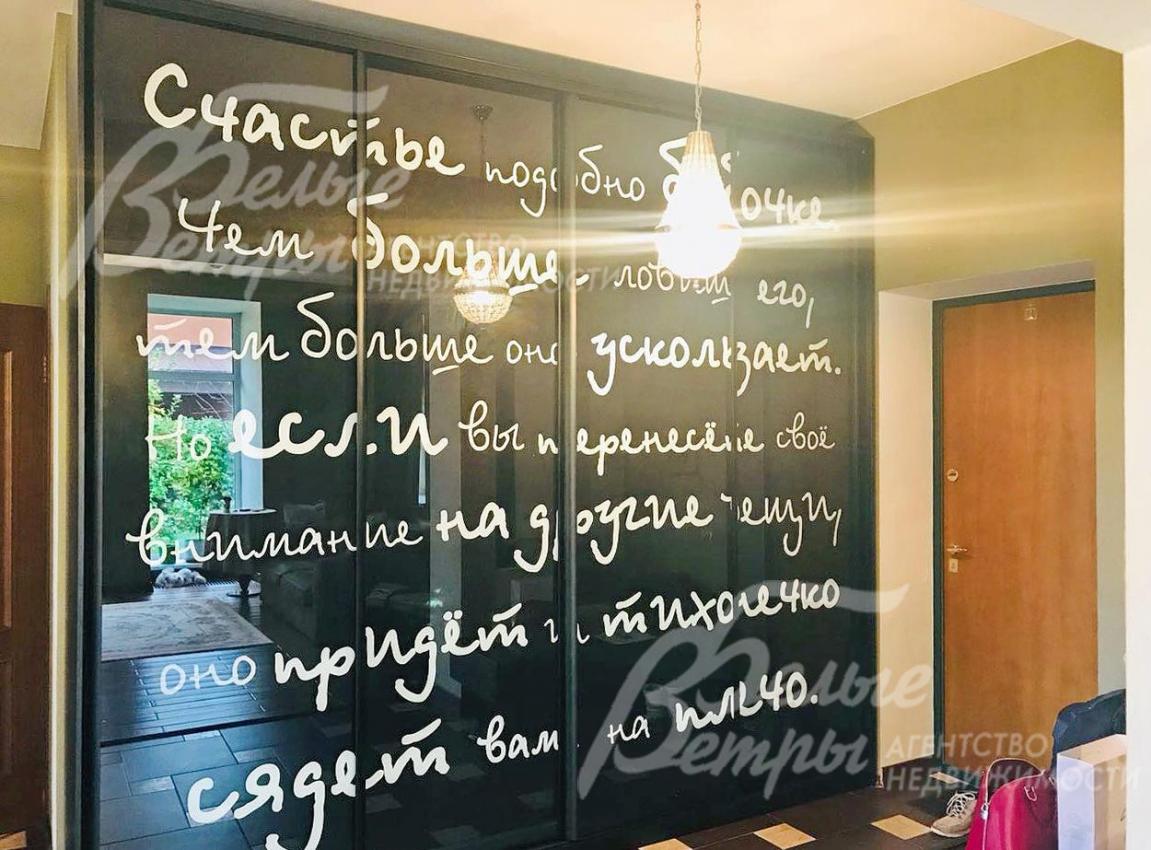 Счастье подобно бабочке.
Чем больше ловишь его,
тем больше оно ускользает.
Но если вы перенесёте своё
внимание на другие вещи,
оно придёт и тихонечко
сядет вам на плечо.
Белые
Ветры
АГЕНТСТВО
НЕДВИЖИМОСТИ
Белые
Ветры
АГЕНТСТВО
НЕДВИЖИМОСТИ